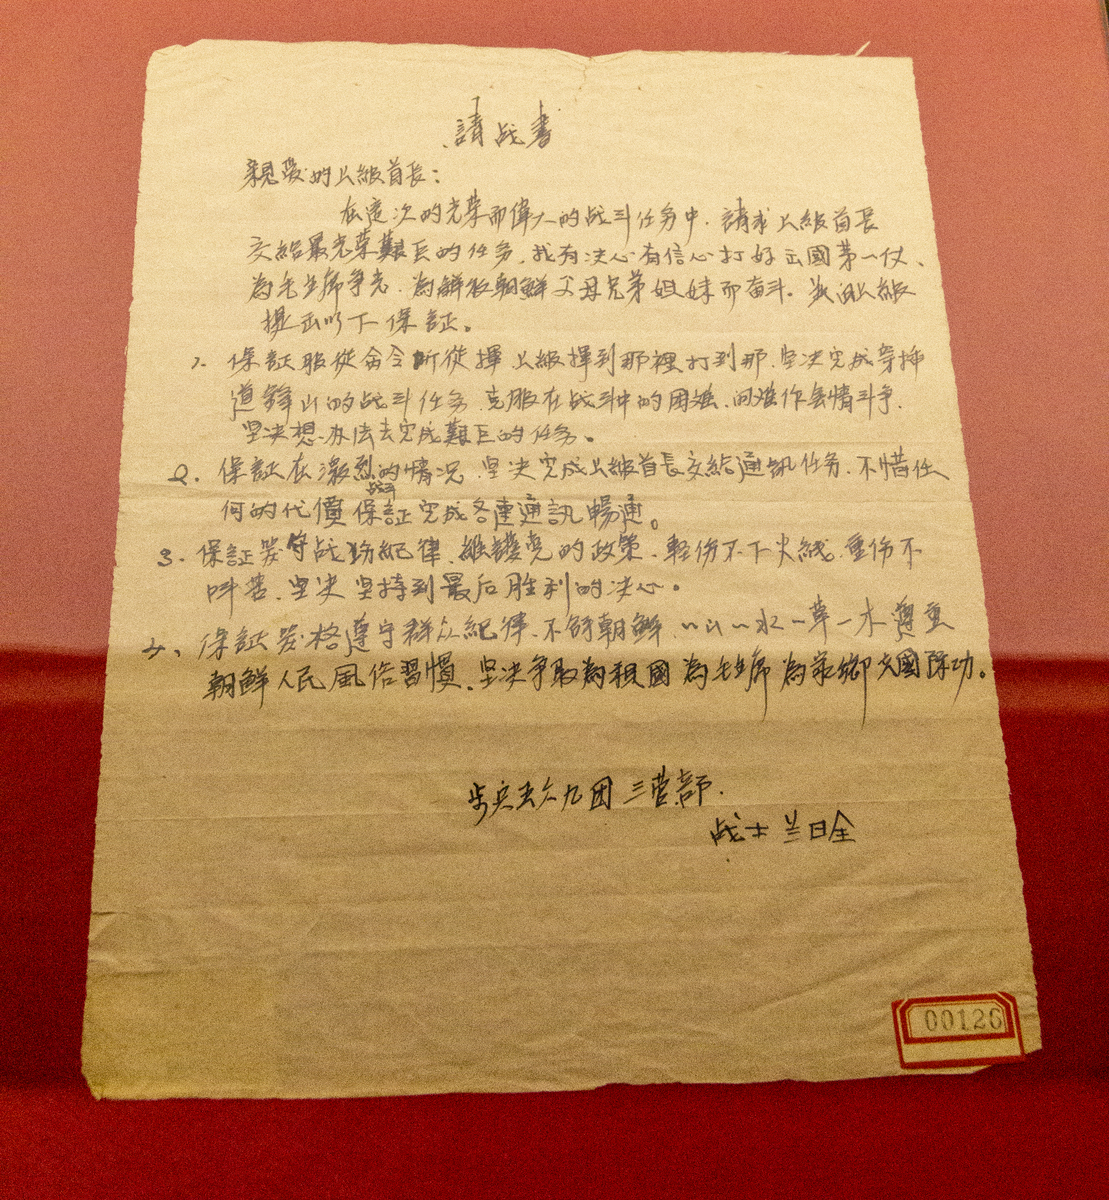 請战書
親爱的上級首長：
在這次的光荣而偉大的战斗任务中．請求上級首長
交給最光荣艱巨的任务．我有决心有信心打好出國第一仗、
為毛主席争光．為解放朝鮮父母兄弟姐妹而奋斗．我向上級
提出以下保証。
1. 保証服從命令听從揮上級揮到那裡打到那．坚决完成
的战斗任务．克服在战斗中的困难．同难作無情斗争．
坚决想办法去完成艱巨的任务。
2. 保証在激烈的战斗情况．坚决完成上級首長交給通訊任务．不惜任
何的代價保証完成各連通訊暢通。
3. 保証紀律．維護党的政策．輕伤不下火线．重伤不
叫苦．坚决坚持到最后胜利的决心。
4、保証格遵守群众紀律．不朝鮮．一山一水一草一木尊重
朝鮮人民風俗習慣．坚决争取為祖國為毛主席為家鄉立國際功。
步兵九团三营部．
战士兰日全
00126